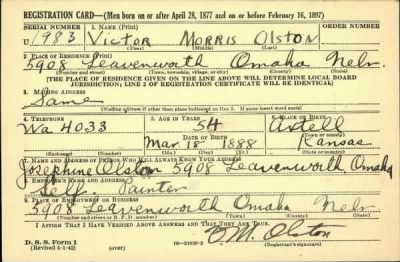 REGISTRATION CARD—(Men born on or after April 28, 1877 and on or before February 16, 1897)
SERIAL NUMBER 1. NAME (Print) ORDER NUMBER
U 1983 Victor Morris Olston
(First) (Middle) (Last)
2. PLACE OF RESIDENCE (Print)
5908 Leavenworth Omaha Nebr.
(Number and street) (Town, township, village, or city) (County) (State)
[THE PLACE OF RESIDENCE GIVEN ON THE LINE ABOVE WILL DETERMINE LOCAL BOARD
JURISDICTION; LINE 2 OF REGISTRATION CERTIFICATE WILL BE IDENTICAL]
3. MAILING ADDRESS
Same
[Mailing address if other than place indicated on line 2. If same insert word same]
4. TELEPHONE 5. AGE IN YEARS 6. PLACE OF BIRTH
Wa 4033 54 Axtell
DATE OF BIRTH (Town or county)
Mar 18 1888 Kansas
(Exchange) (Number) (Mo.) (Day) (Yr.) (State or country)
7. NAME AND ADDRESS OF PERSON WHO WILL ALWAYS KNOW YOUR ADDRESS
Josephine Olston 5908 Leavenworth Omaha
8. EMPLOYER'S NAME AND ADDRESS
Self. Painter
9. PLACE OF EMPLOYMENT OR BUSINESS
5908 Leavenworth Omaha Nebr
(Number and street or R. F. D. number) (Town) (County) (State)
I AFFIRM THAT I HAVE VERIFIED ABOVE ANSWERS AND THAT THEY ARE TRUE.
V. M. Olston
D. S. S. Form 1
(Revised 4-1-42) (over) (Registrant's signature)